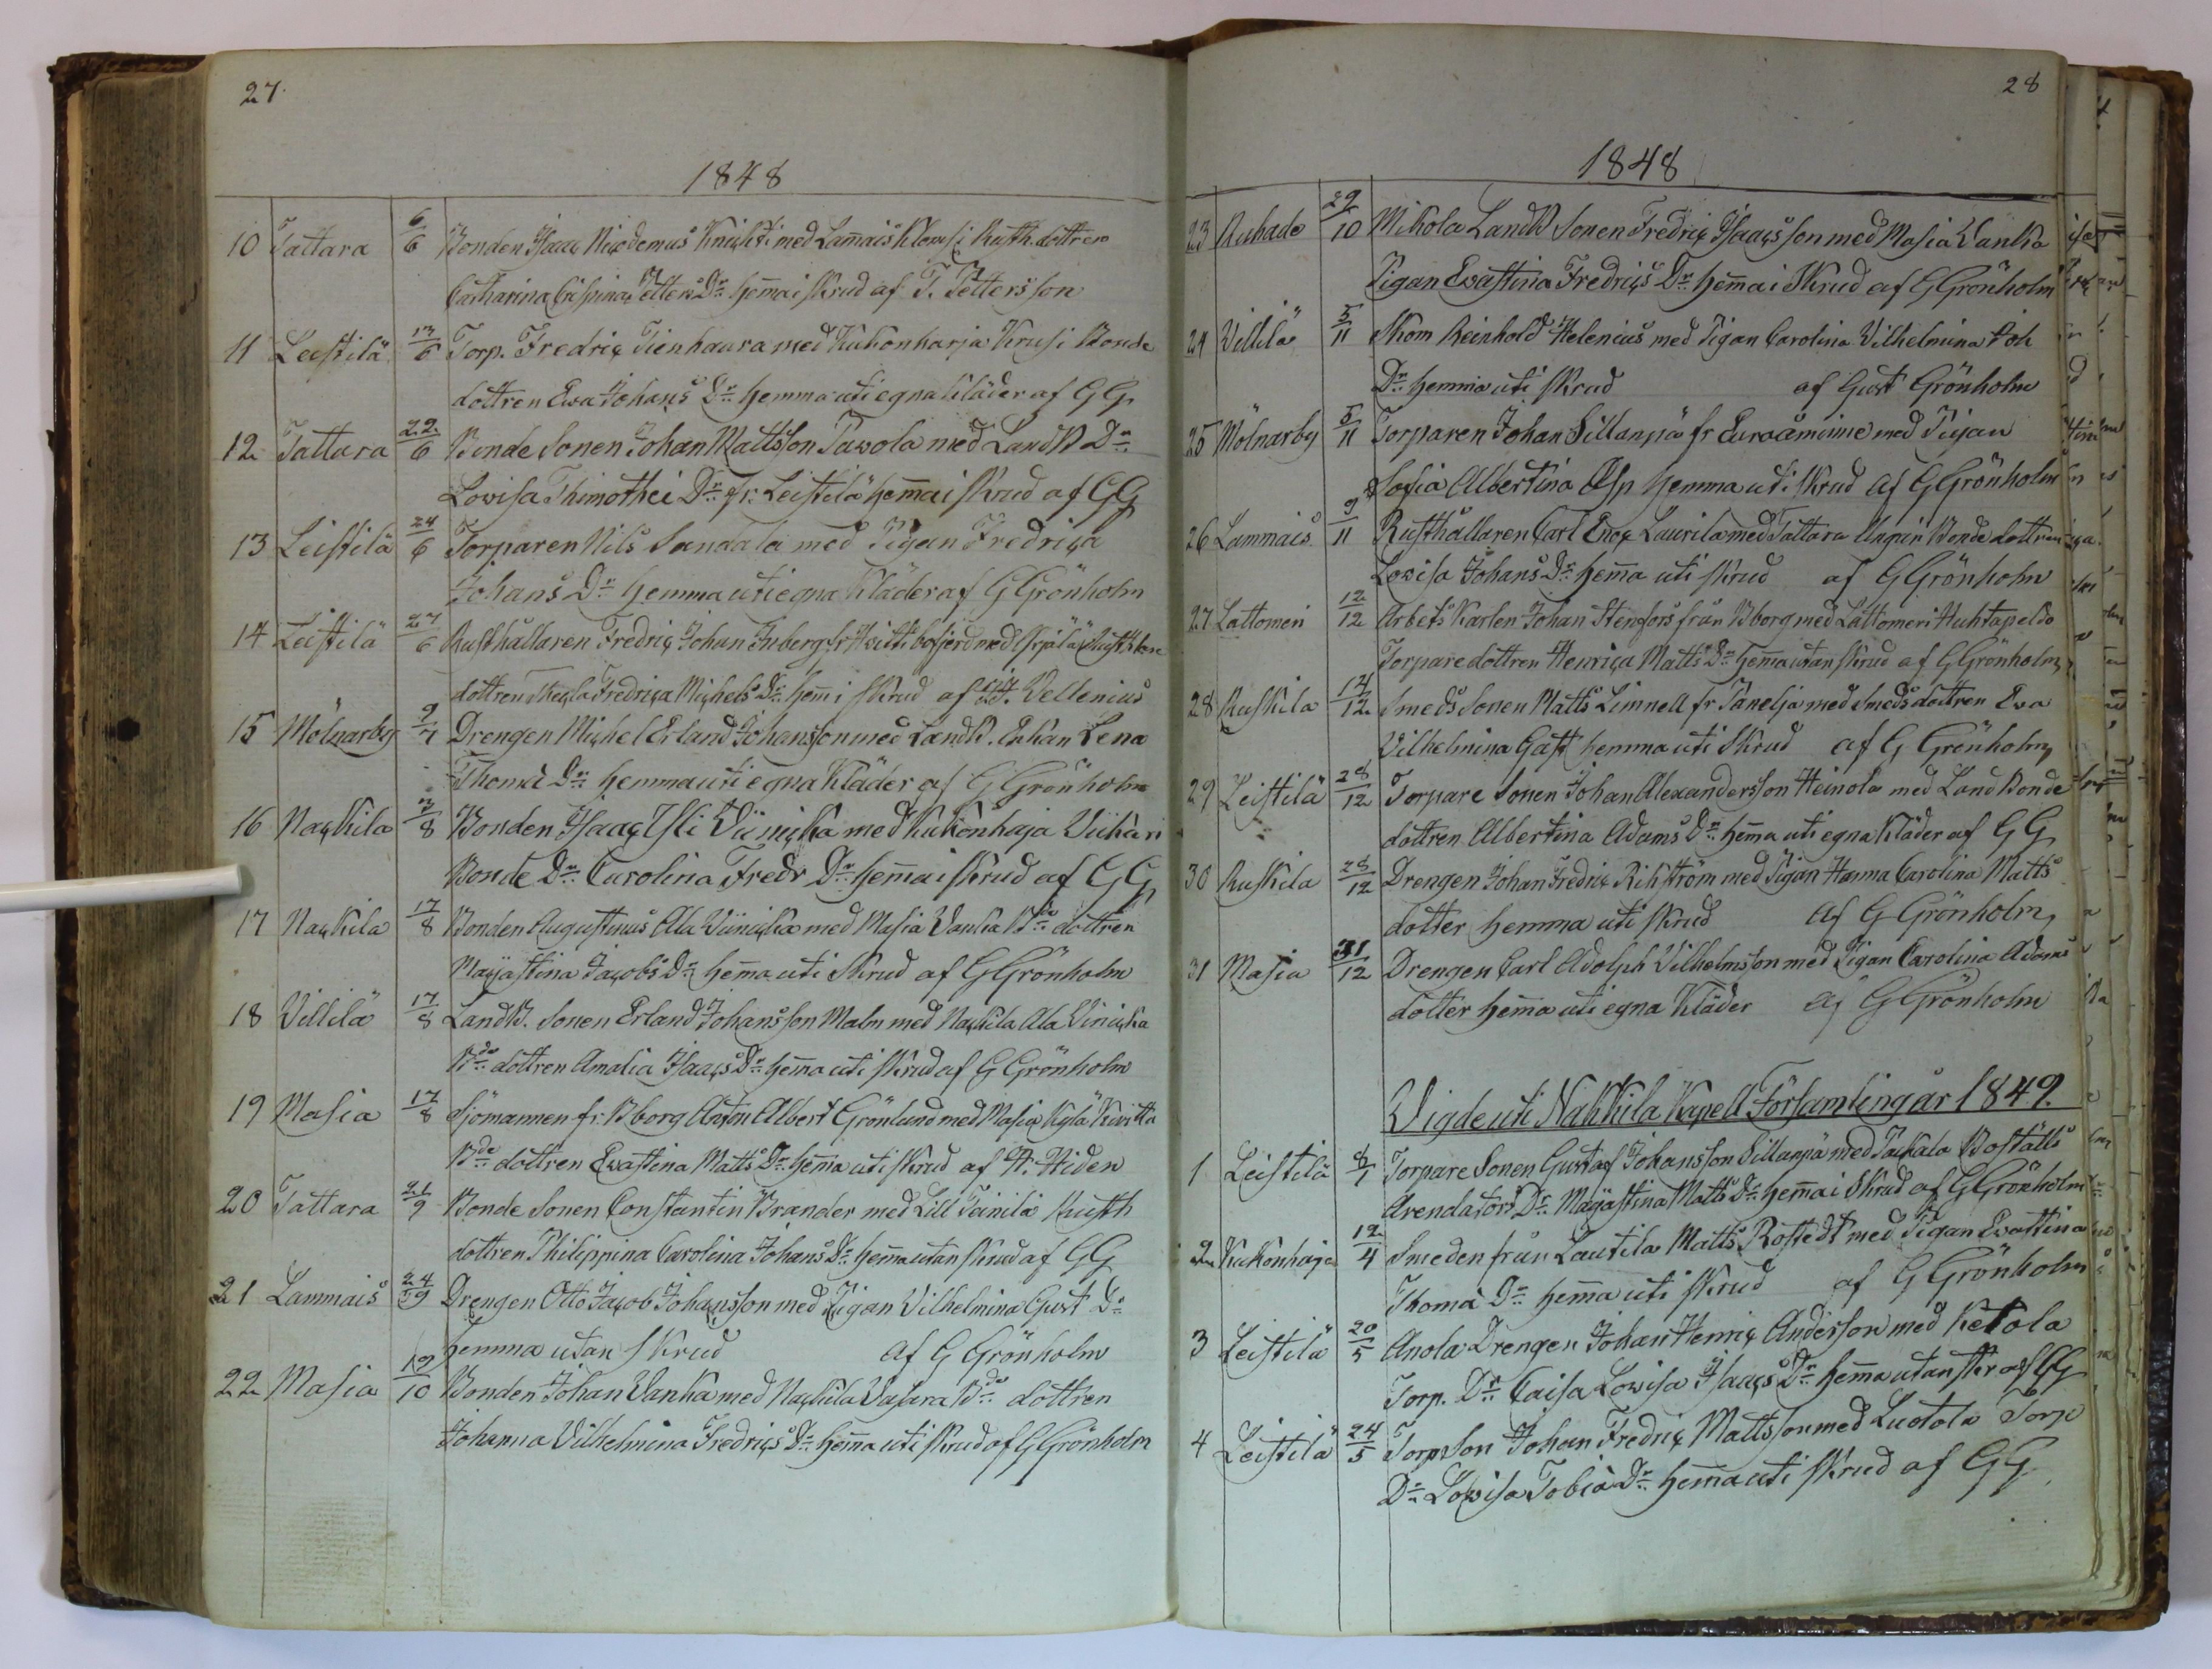 27.
1848
10 Tattara 6/6 Bonden Isaac Nicodemus Knichti med Lam̄ais Klousi Rusth. dottren
Catharina Crispina Petters Dr hem̄a i skrud af T. Pettersson
11 Leistilä 13/6 Torp. Fredric Tienhaara med Kukonharja Krusi Bonde
dottren Ewa Johans Dr hemma uti egna kläder af GG
12 Tattara 22/6 Bonde Sonen Johan Mattsson Pawola med LandB Dr
Lovisa Thimothei Dr fr. Leistilä hem̄a i skrud af GG
13 Leistilä 24/6 Torparen Nils Sandala med Pigan Fredrica
Johans Dr hemma uti egna Kläder af G Grönholm
14 Leistilä 27/6 Rusthållaren Fredric Johan
dottren Thecla Fredrica Michels Dr hem̄ i skrud af Vellenius
15 Molnarby 9/7 Drengen Michel Erland Johansson med LandB. Enkan Lena
Thoma Dr hemma uti egna Kläder af G Grönholm
16 Nackila 3/8 Bonden Isaac Isli Viinicka med Kukonhaja Viikari
Bonde Dr Carolina Fredr Dr hem̄a i skrud af GG
17 Nackila 17/8 Bonden Augustinus Ala Viinicka med Masia Vanka Bde dottren
Majastina Jacobs Dr hem̄a uti skrud af G Grönholm
18 Villilä 17/8 LandB. Sonen Erland Johansson Malm med Nackila Ala Viinicka
Bde dottren Amalia Isaacs Dr hem̄a uti skrud af G Grönholm
19 Masia 17/8 Sjömannen fr. Bborg Anton Albert Grönlund med Masia Kylä Knuttila
Bde dottren Ewastina Matts Dr hem̄a uti skrud af H. Hiden
20 Tattara 21/9 Bonde Sonen Constantin Brander med Lill Teinilä Rusth
dottren Philippina Carolina Johans Dr hem̄a utan skrud af GG
21 Lammais 24/9 Drengen Otto Jacob Johansson med Pigan Vilhelmina Gust Dr
hemma utan skrud af G Grönholm
22 Masia 19/10 Bonden Johan Vanka med Nackila Vasara Bde dottren
Johanna Vilhelmina Fredrics Dr hem̄a uti skrud af G Grönholm
28
1848
23 Ruhade 29/10 Mikola LandB Sonen Fredric Isaacsson med Masia Vanka
Pigan Ewastina Fredrics Dr hem̄a i skrud af G Grönholm
24 Villilä 5/11 Skom Reinhold Helenius med Pigan Carolina Vilhelmina Joh
Dr hemma uti skrud af Gust Grönholm
25 Molnarby 5/11 Torparen Johan Sillanpä fr Euraåminne med Pigan
Sofia Albertina Asp hemma uti skrud af G Grönholm
26 Lammais 9/11 Rusthållaren Carl Enoc Laurila med Tattara Ungin Bonde dottren
Lovisa Johans Dr hem̄a uti skrud af G Grönholm
27 Lattomeri 12/12 Arbets Karlen Johan Stenfors från Bborg med Lattomeri Huhtapeldo
Torpare dottren Henrica Matts Dr hem̄a utan skrud af G Grönholm
28 Ruskila 14/12 Smeds Sonen Matts Limnell fr Tanelja med Smedsdottren Eva
Vilhelmina Gast hemma uti skrud af G Grönholm
29 Leistilä 28/12 Torpare Sonen Johan Alexandersson Heinola med Land Bonde
dottren Albertina Adams Dr hem̄a uti egna Kläder af GG
30 Ruskila 28/12 Drengen Johan Fredric Rikström med Pigan Hanna Carolina Matts
dotter hemma uti skrud af G Grönholm
31 Masia 31/12 Drengen Carl Adolph Vilhelmsson med Pigan Carolina Adams
dotter hem̄a uti egna Kläder af G Grönholm
Vigde uti Nakkila Kapell Församling år 1849.
1 Leistilä Torpare Sonen Gustaf Johansson Sillanpä med Boställs
Arendators Dr Majastina Matts Dr hem̄a i skrud af G Grönholm
2 Kukonhaja 12/4 Smeden från Lautila Matts Rostedt med Pigan Ewastina
Thoma Dr hem̄a uti skrud af G Grönholm
3 Leistilä 20/5 Anola Drengen Johan Henric Andersson med Ketola
Torp. Dr Caisa Lovisa Isaacs Dr hem̄a utan skr af GG
4 Leistilä 24/5 Torp Son Johan Fredric Mattsson med Luotola Torp
Dr Lovisa Tobia Dr hem̄a uti skrud af GG